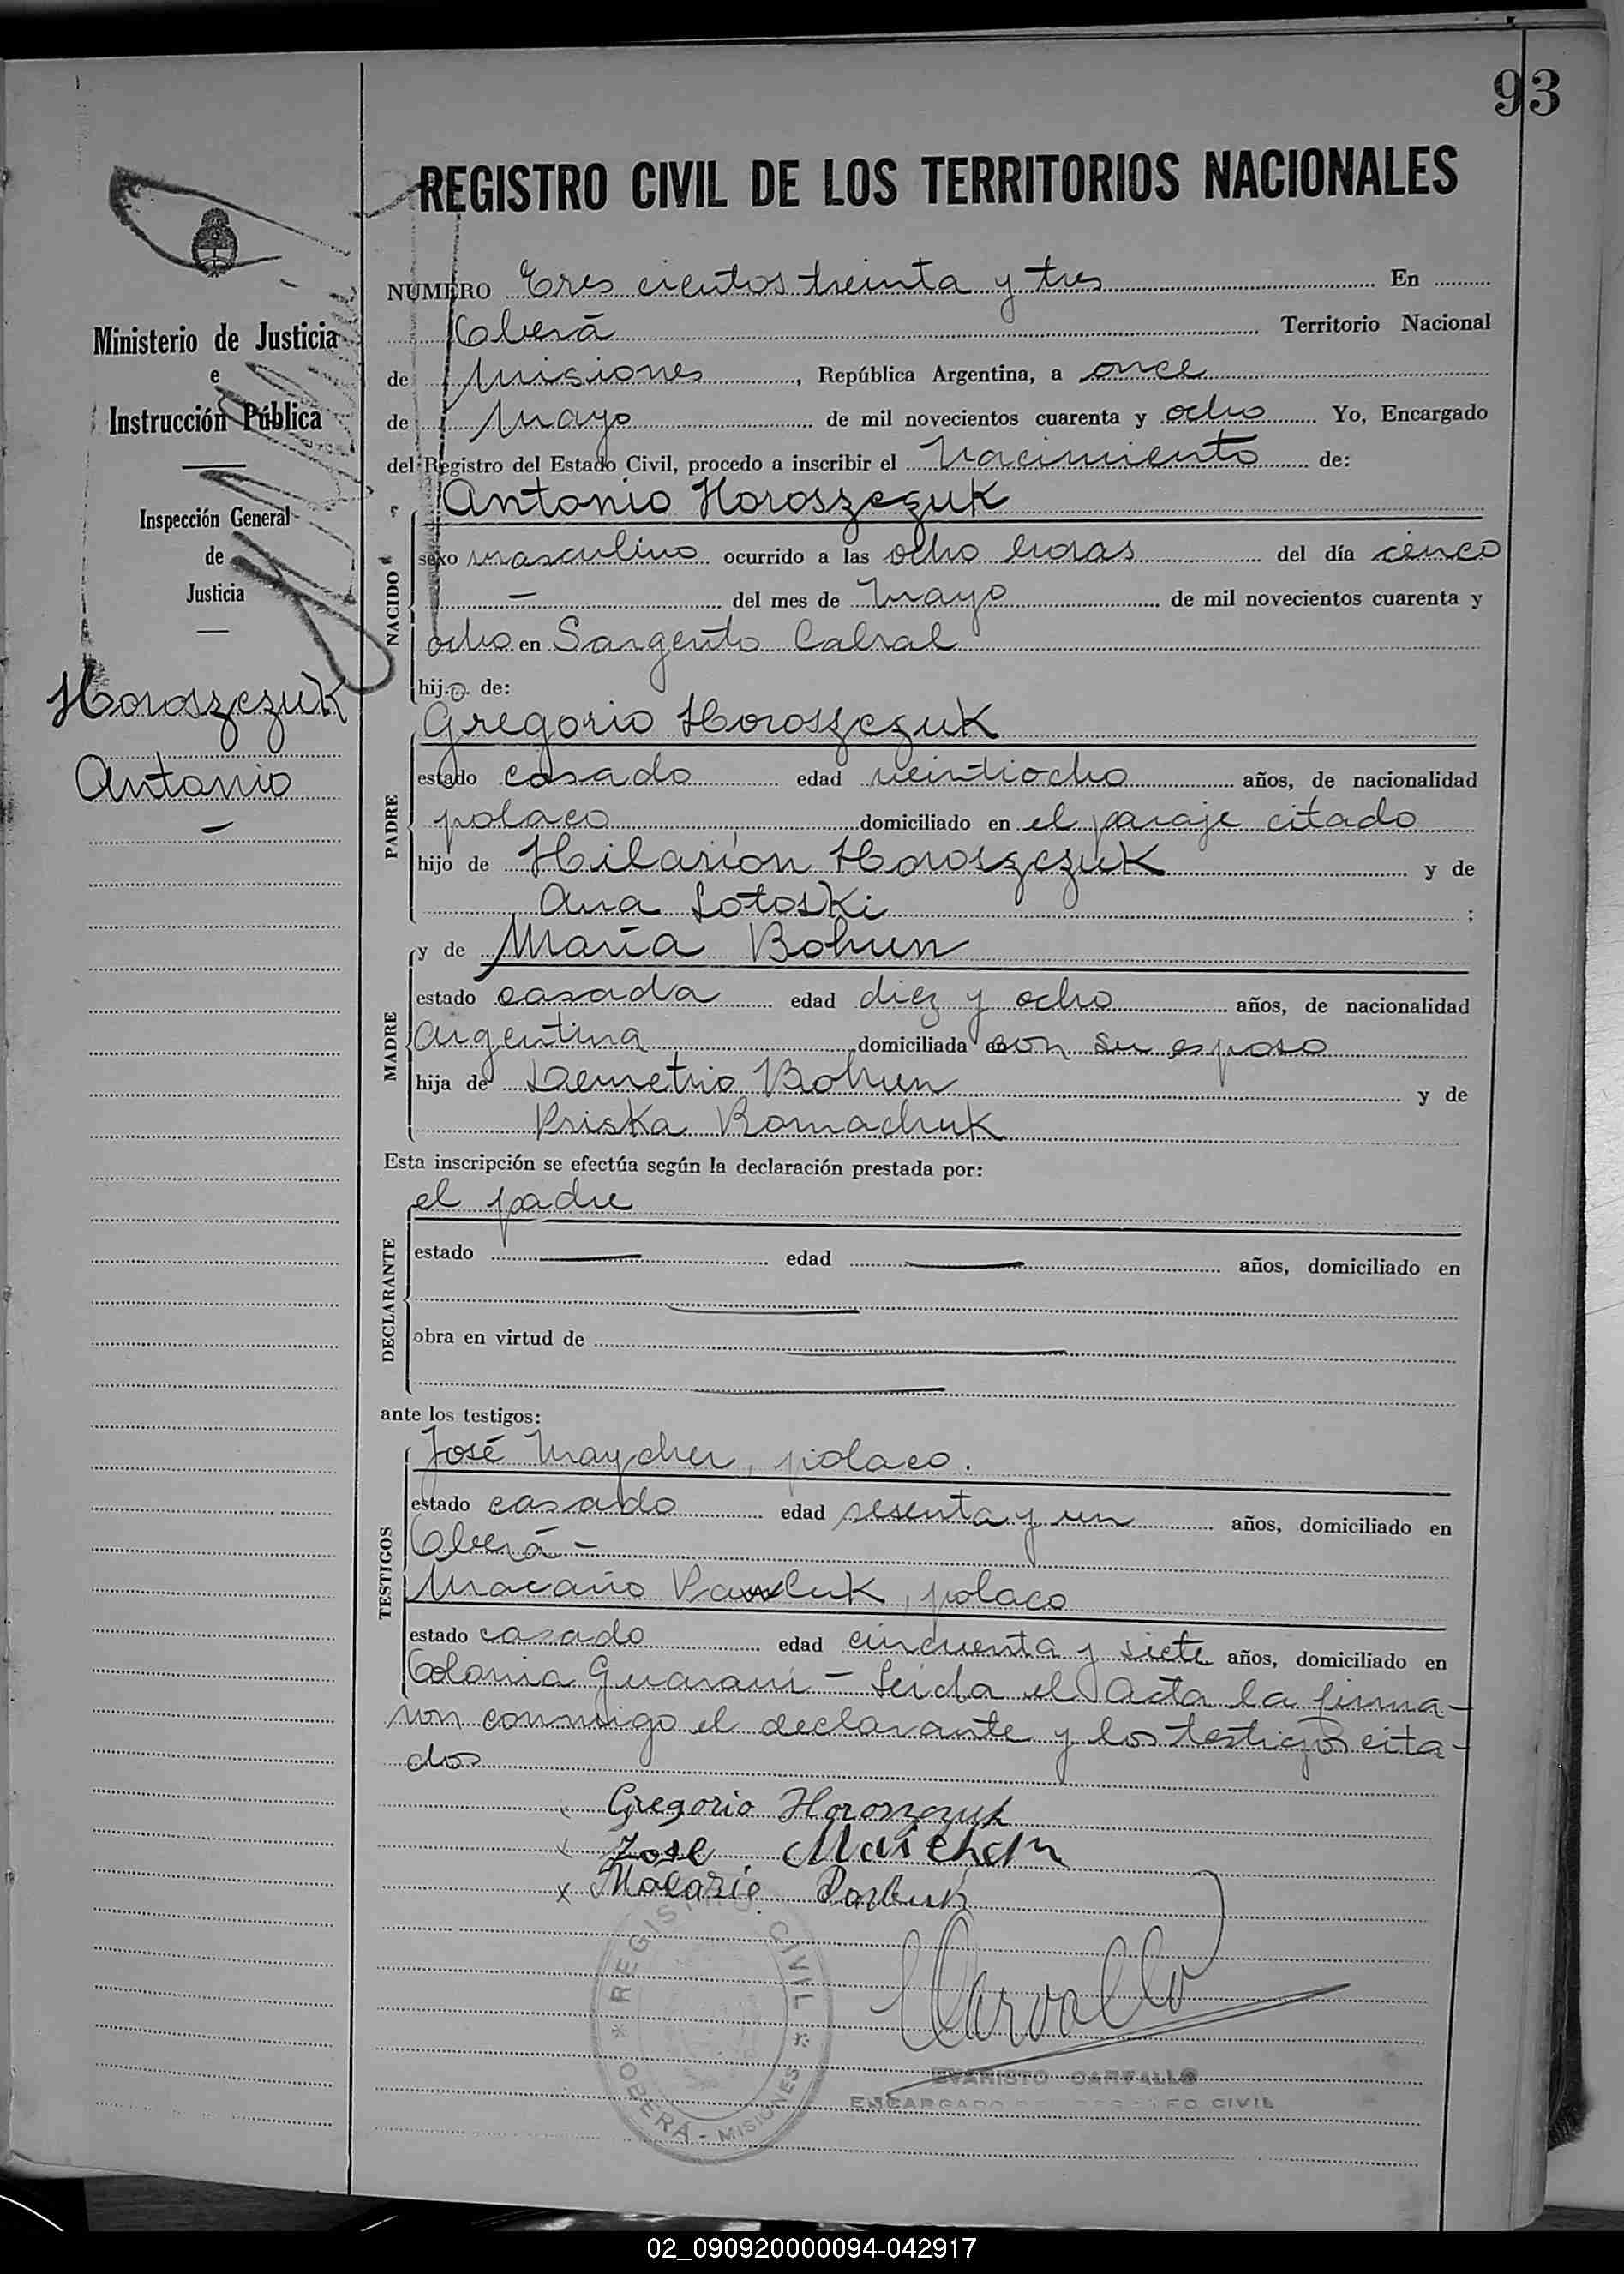 93
REGISTRO CIVIL DE LOS TERRITORIOS NACIONALES
Ministerio de Justicia
e
Instrucción Pública
Inspección General
de
Justicia
Horoszczuk
Antonio
NUMERO Tres cientos treinta y tres En
Oberá Territorio Nacional
de Misiones, República Argentina, a once
de Mayo de mil novecientos cuarenta y ocho Yo, Encargado
del Registro del Estado Civil, procedo a inscribir el Nacimiento de:
NACIDO
Antonio Horoszczuk
sexo masculino ocurrido a las ocho horas del día cinco
— del mes de Mayo de mil novecientos cuarenta y
ocho en Sargento Cabral
hijo de:
PADRE
Gregorio Horoszczuk
estado casado edad veintiocho años, de nacionalidad
polaco domiciliado en el paraje citado
hijo de Hilarión Horoszczuk y de
Ana Lotoski ;
MADRE
y de María Bohun
estado casada edad diez y ocho años, de nacionalidad
Argentina domiciliada en con su esposo
hija de Demetrio Bohun y de
Priska Romachuk
Esta inscripción se efectúa según la declaración prestada por:
DECLARANTE
el padre
estado — edad — años, domiciliado en
obra en virtud de —
ante los testigos:
TESTIGOS
José Maycher, polaco.
estado casado edad sesenta y un años, domiciliado en
Oberá —
Macario Pawluk, polaco
estado casado edad cincuenta y siete años, domiciliado en
Colonia Guaraní — Leida el Acta la firma-
ron conmigo el declarante y los testigos cita-
dos
x Gregorio Horoszczuk
x Jose
x Macario
REGISTRO CIVIL
* OBERÁ - MISIONES *
Carvallo
EVARISTO CARVALLO
ENCARGADO DEL REGISTRO CIVIL
02_090920000094-042917